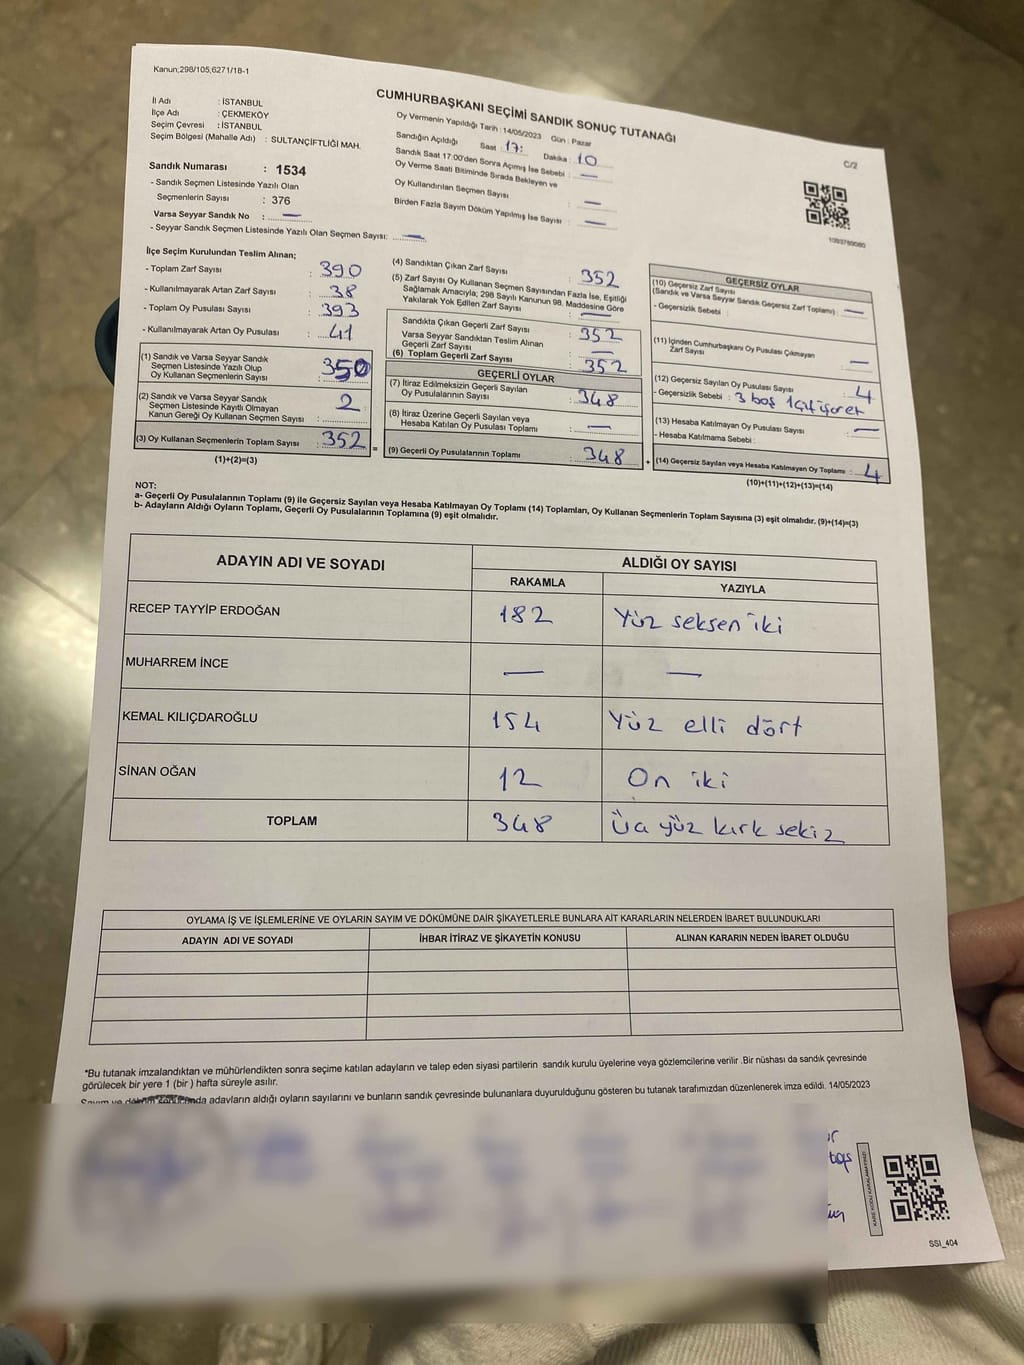 Kanun;298/105,6271/18-1
CUMHURBAŞKANI SEÇİMİ SANDIK SONUÇ TUTANAĞI
C/2
İl Adı : İSTANBUL
İlçe Adı : ÇEKMEKÖY
Seçim Çevresi : İSTANBUL
Seçim Bölgesi (Mahalle Adı) : SULTANÇİFTLİĞİ MAH.
Sandık Numarası : 1534
- Sandık Seçmen Listesinde Yazılı Olan
Seçmenlerin Sayısı : 376
Varsa Seyyar Sandık No : —
- Seyyar Sandık Seçmen Listesinde Yazılı Olan Seçmen Sayısı: —
Oy Vermenin Yapıldığı Tarih : 14/05/2023 Gün : Pazar
Sandığın Açıldığı Saat : 17: Dakika : 10
Sandık Saat 17:00'den Sonra Açımış İse Sebebi : —
Oy Verme Saati Bitiminde Sırada Bekleyen ve
Oy Kullandırılan Seçmen Sayısı : —
Birden Fazla Sayım Döküm Yapılmış İse Sayısı : —
1093789080
İlçe Seçim Kurulundan Teslim Alınan;
- Toplam Zarf Sayısı : 390
- Kullanılmayarak Artan Zarf Sayısı : 38
- Toplam Oy Pusulası Sayısı : 393
- Kullanılmayarak Artan Oy Pusulası : 41
(1) Sandık ve Varsa Seyyar Sandık
Seçmen Listesinde Yazılı Olup
Oy Kullanan Seçmenlerin Sayısı : 350
(2) Sandık ve Varsa Seyyar Sandık
Seçmen Listesinde Kayıtlı Olmayan
Kanun Gereği Oy Kullanan Seçmen Sayısı : 2
(3) Oy Kullanan Seçmenlerin Toplam Sayısı : 352 =
(1)+(2)=(3)
(4) Sandıktan Çıkan Zarf Sayısı : 352
(5) Zarf Sayısı Oy Kullanan Seçmen Sayısından Fazla İse, Eşitliği
Sağlamak Amacıyla; 298 Sayılı Kanunun 98. Maddesine Göre
Yakılarak Yok Edilen Zarf Sayısı : —
Sandıkta Çıkan Geçerli Zarf Sayısı : 352
Varsa Seyyar Sandıktan Teslim Alınan
Geçerli Zarf Sayısı : —
(6) Toplam Geçerli Zarf Sayısı : 352
GEÇERLİ OYLAR
(7) İtiraz Edilmeksizin Geçerli Sayılan
Oy Pusulalarının Sayısı : 348
(8) İtiraz Üzerine Geçerli Sayılan veya
Hesaba Katılan Oy Pusulası Toplamı : —
(9) Geçerli Oy Pusulalarının Toplamı : 348 +
GEÇERSİZ OYLAR
(10) Geçersiz Zarf Sayısı
(Sandık ve Varsa Seyyar Sandık Geçersiz Zarf Toplamı) : —
- Geçersizlik Sebebi :
(11) İçinden Cumhurbaşkanı Oy Pusulası Çıkmayan
Zarf Sayısı : —
(12) Geçersiz Sayılan Oy Pusulası Sayısı : 4
- Geçersizlik Sebebi : 3 boş 1 çift işaret
(13) Hesaba Katılmayan Oy Pusulası Sayısı : —
- Hesaba Katılmama Sebebi :
(14) Geçersiz Sayılan veya Hesaba Katılmayan Oy Toplamı : 4
(10)+(11)+(12)+(13)=(14)
NOT:
a- Geçerli Oy Pusulalarının Toplamı (9) ile Geçersiz Sayılan veya Hesaba Katılmayan Oy Toplamı (14) Toplamları, Oy Kullanan Seçmenlerin Toplam Sayısına (3) eşit olmalıdır. (9)+(14)=(3)
b- Adayların Aldığı Oyların Toplamı, Geçerli Oy Pusulalarının Toplamına (9) eşit olmalıdır.
ADAYIN ADI VE SOYADI ALDIĞI OY SAYISI
RAKAMLA YAZIYLA
RECEP TAYYİP ERDOĞAN 182 Yüz seksen iki
MUHARREM İNCE — —
KEMAL KILIÇDAROĞLU 154 Yüz elli dört
SİNAN OĞAN 12 On iki
TOPLAM 348 Üç yüz kırk sekiz
OYLAMA İŞ VE İŞLEMLERİNE VE OYLARIN SAYIM VE DÖKÜMÜNE DAİR ŞİKAYETLERLE BUNLARA AİT KARARLARIN NELERDEN İBARET BULUNDUKLARI
ADAYIN ADI VE SOYADI İHBAR İTİRAZ VE ŞİKAYETİN KONUSU ALINAN KARARIN NEDEN İBARET OLDUĞU
*Bu tutanak imzalandıktan ve mühürlendikten sonra seçime katılan adayların ve talep eden siyasi partilerin sandık kurulu üyelerine veya gözlemcilerine verilir .Bir nüshası da sandık çevresinde
görülecek bir yere 1 (bir ) hafta süreyle asılır.
adayların aldığı oyların sayılarını ve bunların sandık çevresinde bulunanlara duyurulduğunu gösteren bu tutanak tarafımızdan düzenlenerek imza edildi. 14/05/2023
KARE KODU KARALAMAYINIZ!
SSI_404